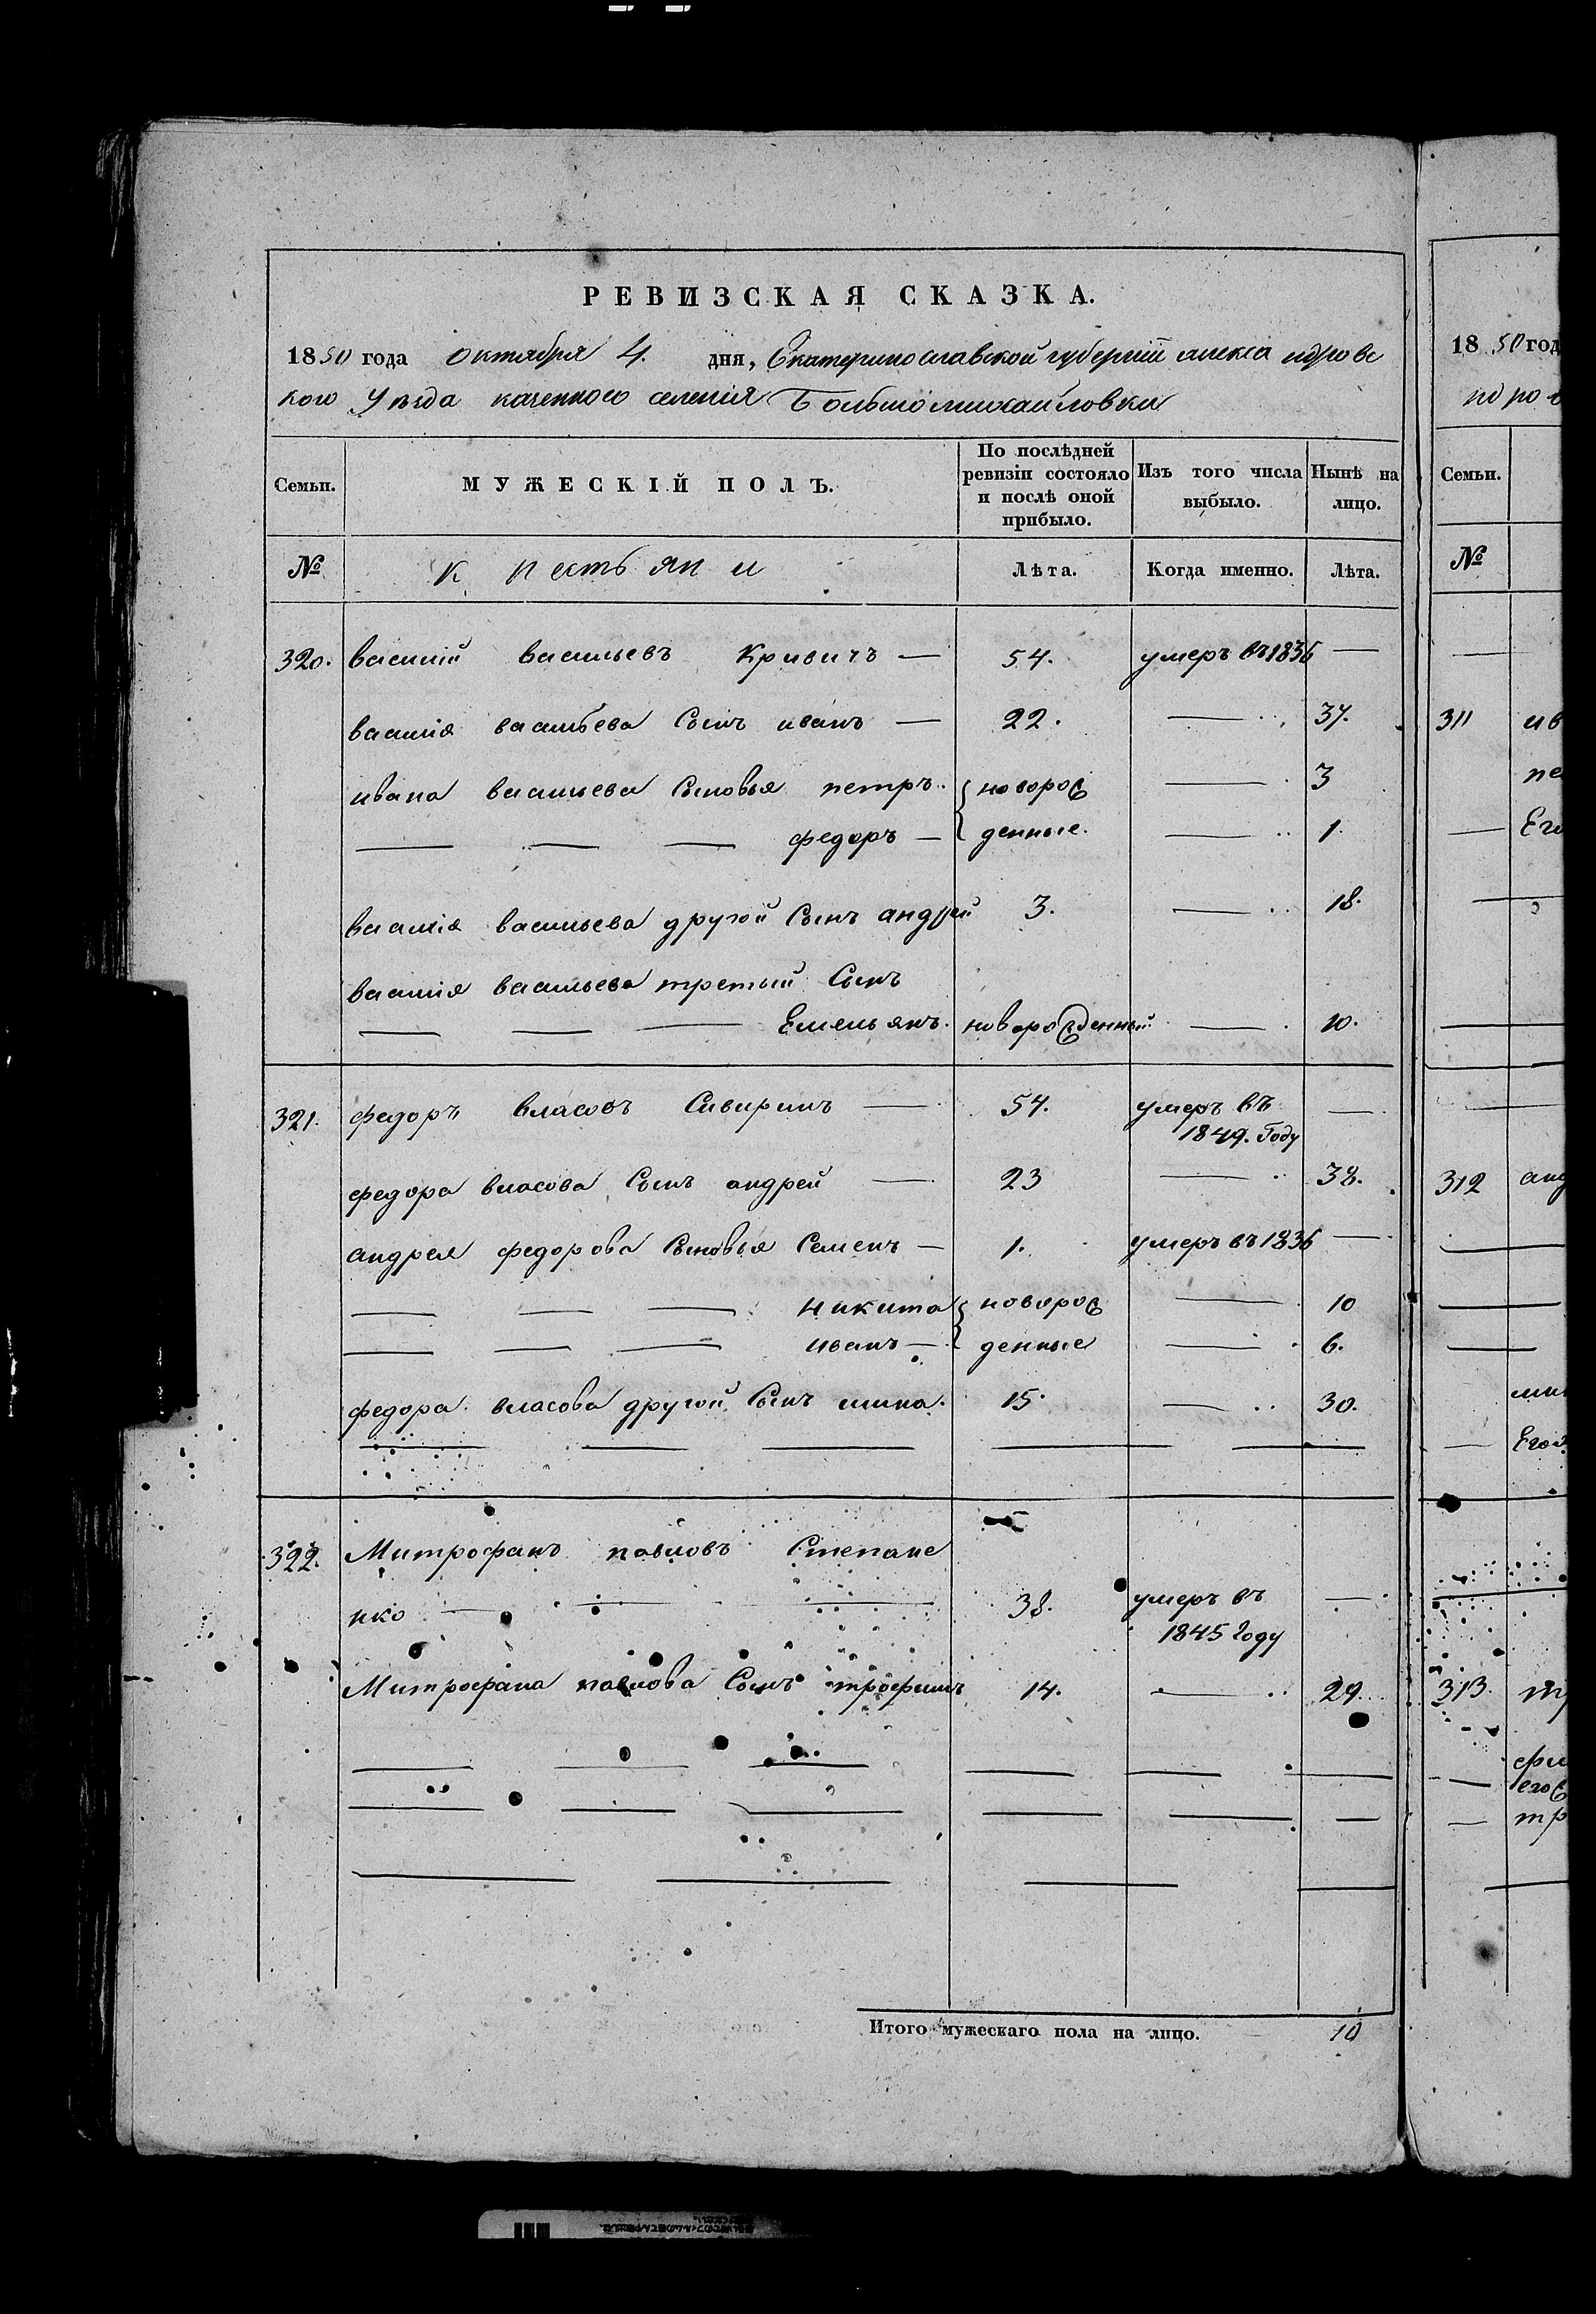 РЕВИЗСКАЯ СКАЗКА.
1850 года октября 4. дня, Екатеринославской губернiи александровс
кого уѣзда казенного селенiя Большомихайловки
Семьи.
МУЖЕСКІЙ ПОЛЪ.
По послѣдней ревизіи состояло и послѣ оной прибыло.
Изъ того числа выбыло.
Нынѣ на лицо.
№ крестьяни Лѣта. Когда именно. Лѣта.
320. василiй васильевъ Кривичъ — 54. умеръ въ 1836 —
василiя васильева Сынъ иванъ — 22. — 37.
ивана васильева Сыновья петръ. новорож — 3
— — — федоръ — денные. — 1.
василiя васильева другой Сынъ андрей 3. — 18.
василiя васильева третый Сынъ
— — — Емельянъ. новорожденный — 10.
321. федоръ власовъ Сивиринъ — 54. умеръ въ —
1849. Году
федора власова Сынъ андрей — 23 — 38.
андрея федорова Сыновья Семенъ — 1. умеръ въ 1836 —
— — — никита новорож — 10
— — — иванъ — денные — 6.
федора власова другой Сынъ 15. — 30.
322. Митрофанъ павловъ Степане
нко — 38. умеръ въ —
1845 Году
Митрофана павлова Сынъ трофимъ 14. — 29.
Итого мужескаго пола на лицо. 10
1850 год
Семьи.
№
311 ив
пе
Его
312 анд
Его
313. тр
его
тр